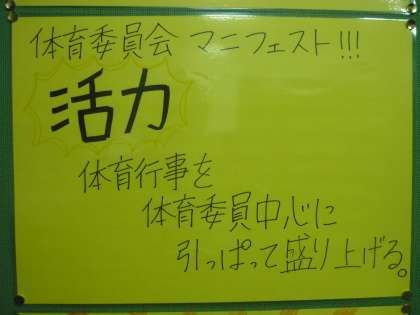 体育委員会 マニフェスト!!!
活力
体育行事を
体育委員中心に
引っぱって盛り上げる。